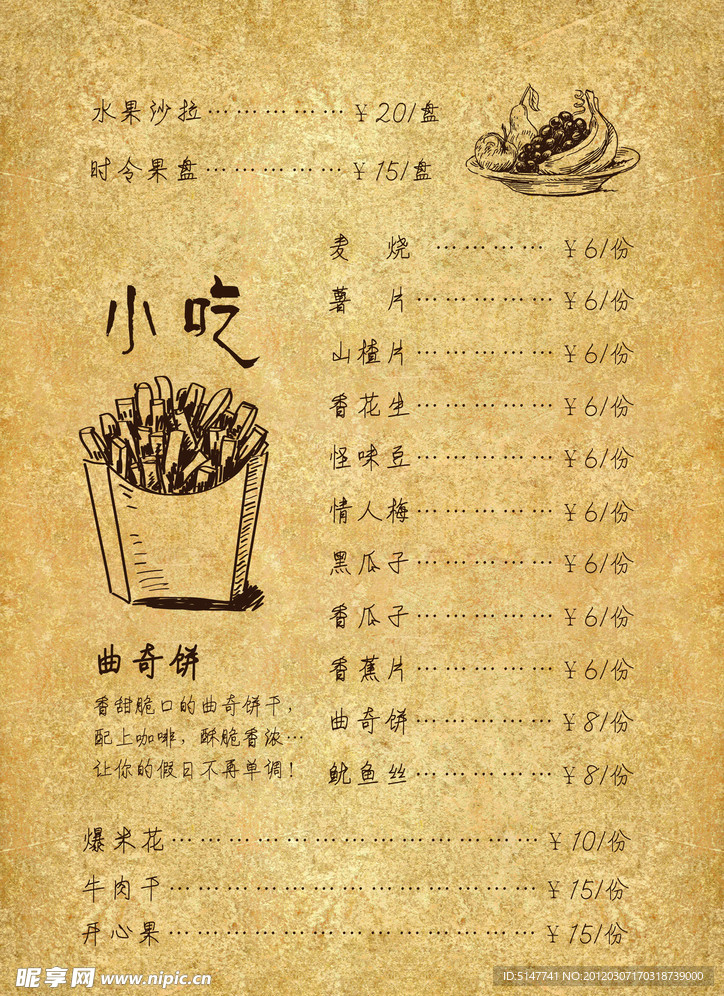 水果沙拉……………¥20/盘
时令果盘……………¥15/盘
小吃
麦 烧 …………¥6/份
薯 片……………¥6/份
山楂片……………¥6/份
香花生……………¥6/份
怪味豆……………¥6/份
情人梅……………¥6/份
黑瓜子……………¥6/份
香瓜子……………¥6/份
香蕉片……………¥6/份
曲奇饼……………¥8/份
鱿鱼丝……………¥8/份
曲奇饼
香甜脆口的曲奇饼干，
配上咖啡，酥脆香浓…
让你的假日不再单调！
爆米花……………………………¥10/份
牛肉干……………………………¥15/份
开心果……………………………¥15/份
昵享网 www.nipic.cn
ID:5147741 NO:20120307170318739000